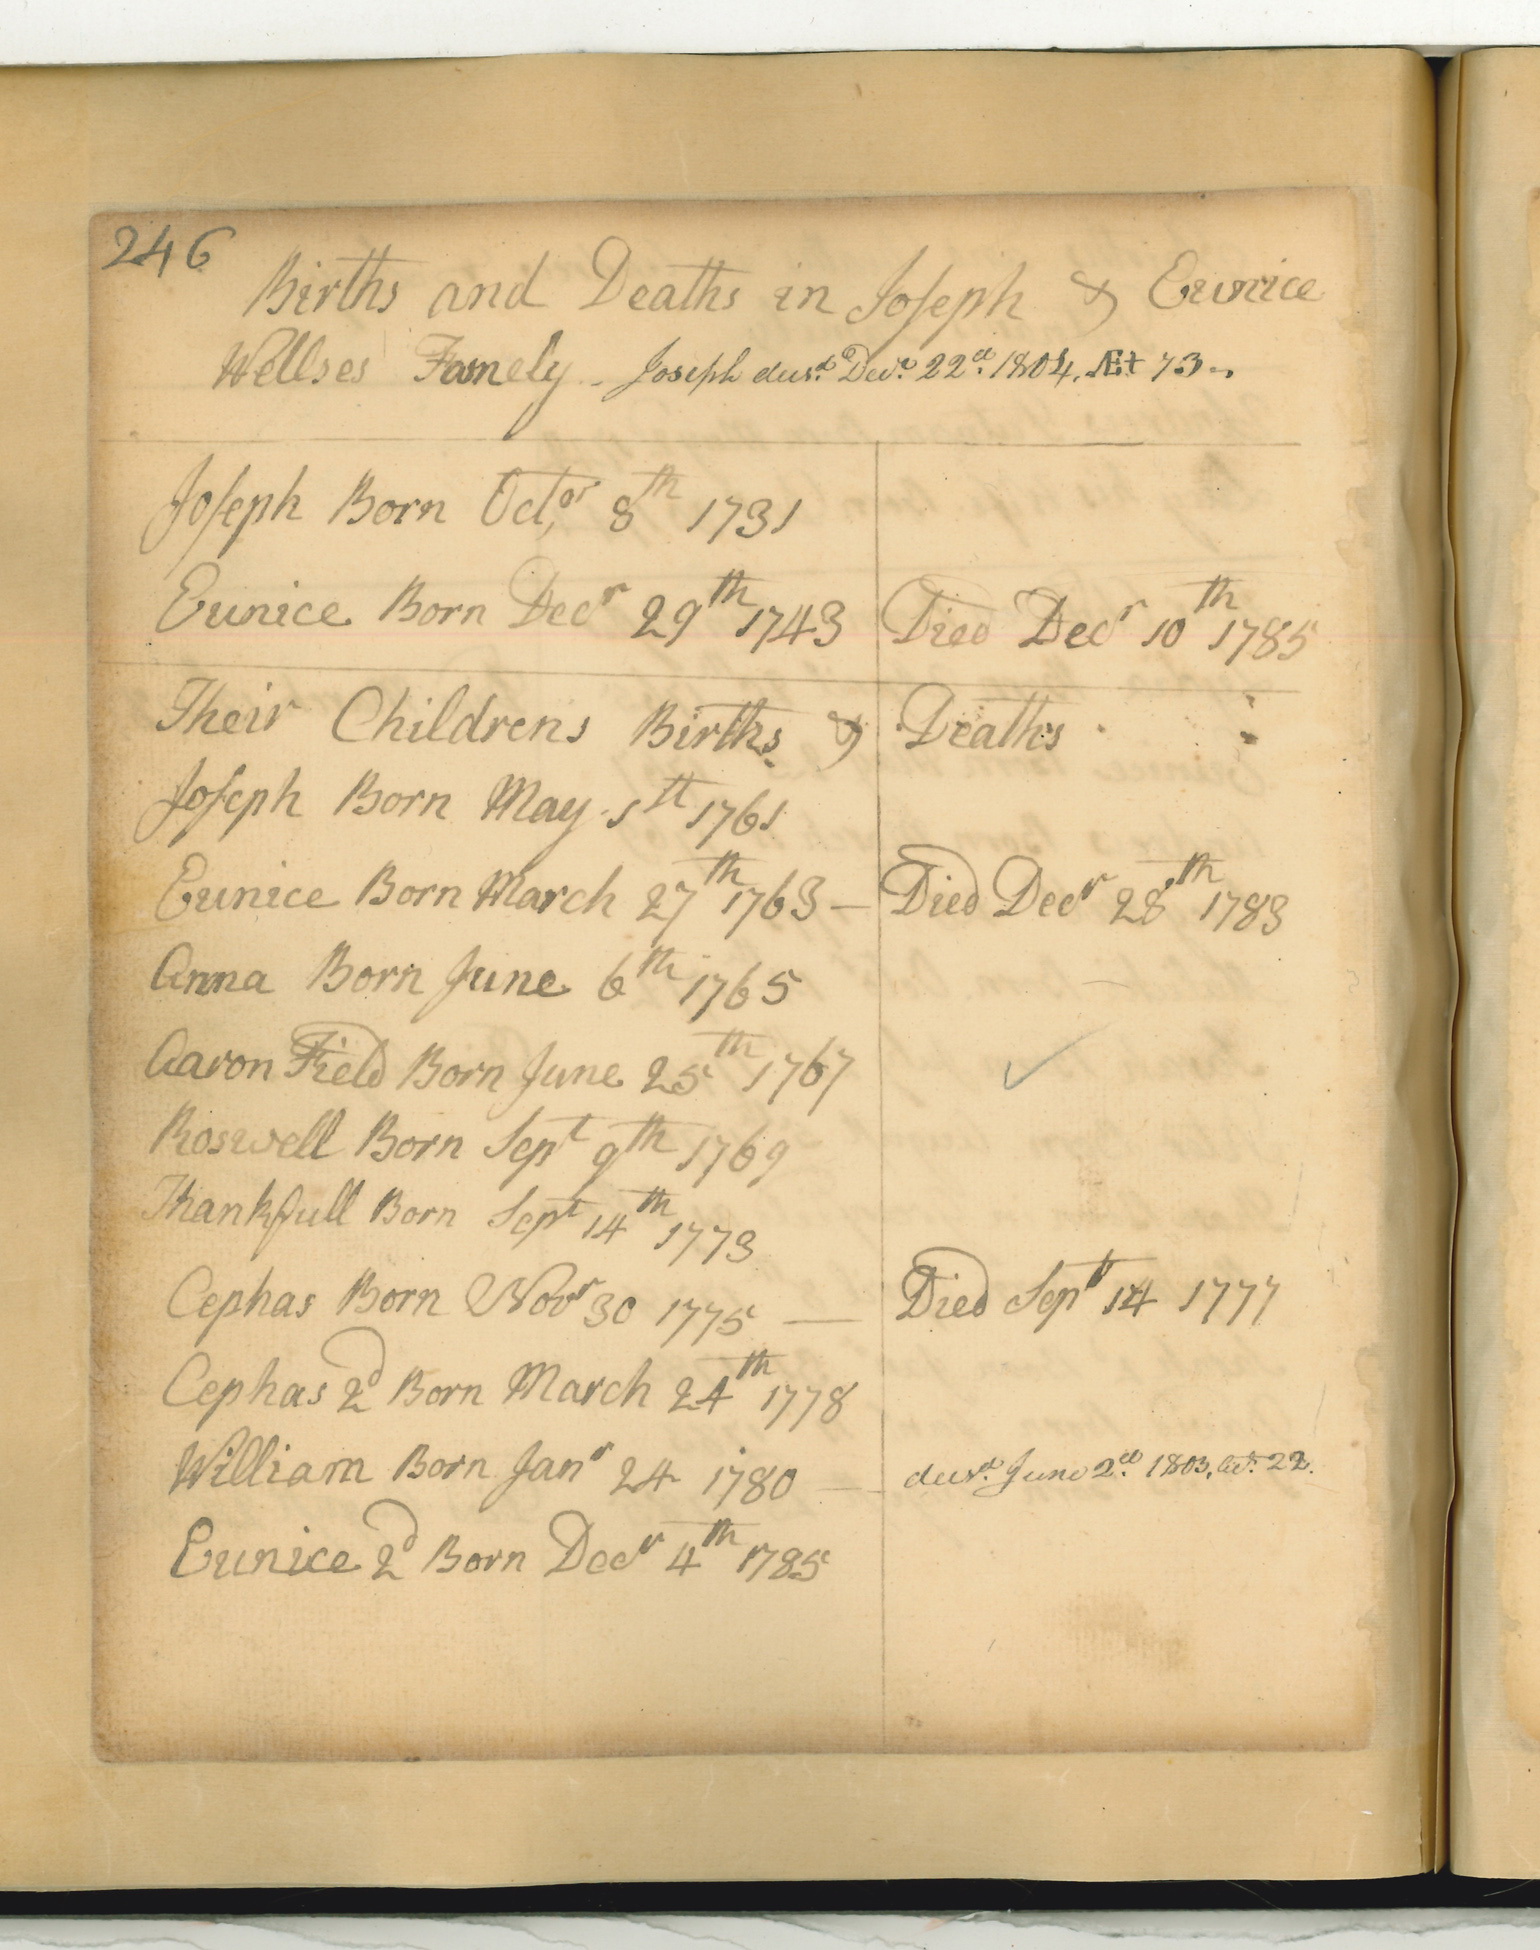 246
Births and Deaths in Joseph & Eunice
Wellses Famely - Joseph decsd. Decr. 22d. 1804. Æt 73.
Joseph Born Octor, 8th 1731
Eunice Born Decr 29th 1743 Died Decr 10th 1785
Their Childrens Births & Deaths
Joseph Born May 1st 1761
Eunice Born March 27th 1763 — Died Decr 28th 1783
Anna Born June 6th 1765
Aaron Field Born June 25th 1767
Roswell Born Sept 9th 1769
Thankfull Born Sept 14th 1773
Cephas Born Novr 30 1775 — Died Sept 14 1777
Cephas 2d Born March 24th 1778
William Born Janr 24 1780 — decsd. June 2d. 1803, Æt. 22.
Eunice 2d Born Decr 4th 1785